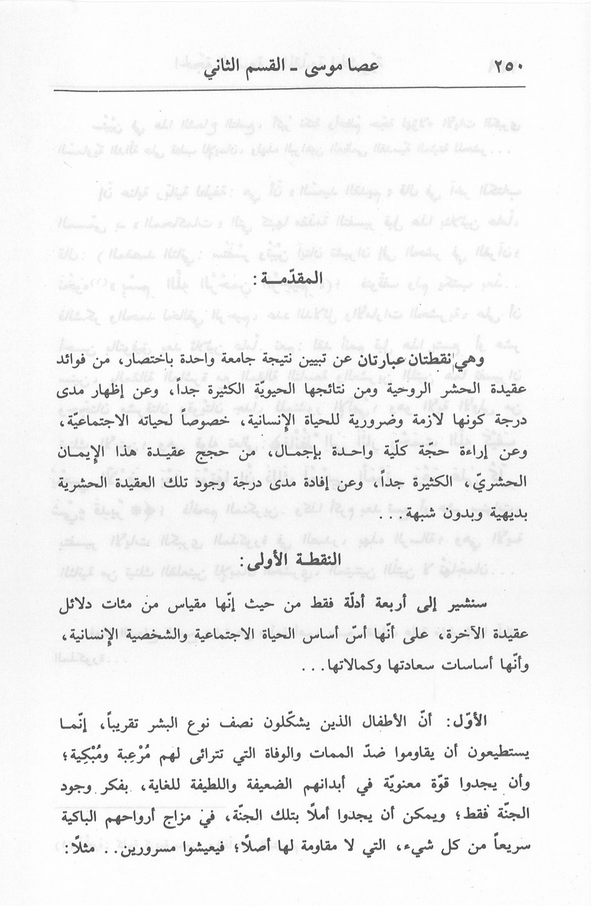 ٢٥٠ عصا موسى ـ القسم الثاني
المقدّمـــة:
وهي نقطتان عبارتان عن تبيين نتيجة جامعة واحدة باختصار، من فوائد
عقيدة الحشر الروحية ومن نتائجها الحيويّة الكثيرة جداً، وعن إظهار مدى
درجة كونها لازمة وضرورية للحياة الإنسانية، خصوصاً لحياته الاجتماعيّة،
وعن إراءة حجّة كلّية واحدة بإجمال، من حجج عقيدة هذا الإيمان
الحشريّ، الكثيرة جداً، وعن إفادة مدى درجة وجود تلك العقيدة الحشرية
بديهية وبدون شبهة...
النقطة الأولى:
سنشير إلى أربعة أدلّة فقط من حيث إنّها مقياس من مئات دلائل
عقيدة الآخرة، على أنّها أسّ أساس الحياة الاجتماعية والشخصية الإنسانية،
وأنّها أساسات سعادتها وكمالاتها...
الأوّل: أنّ الأطفال الذين يشكّلون نصف نوع البشر تقريباً، إنّمـا
يستطيعون أن يقاوموا ضدّ الممات والوفاة التي تتراءى لهم مُرْعِبة ومُبْكِية؛
وأن يجدوا قوّة معنويّة في أبدانهم الضعيفة واللطيفة للغاية، بفكر وجود
الجنّة فقط؛ ويمكن أن يجدوا أملاً بتلك الجنّة، في مزاج أرواحهم الباكية
سريعاً من كل شيء، التي لا مقاومة لها أصلاً؛ فيعيشوا مسرورين.. مثلاً: